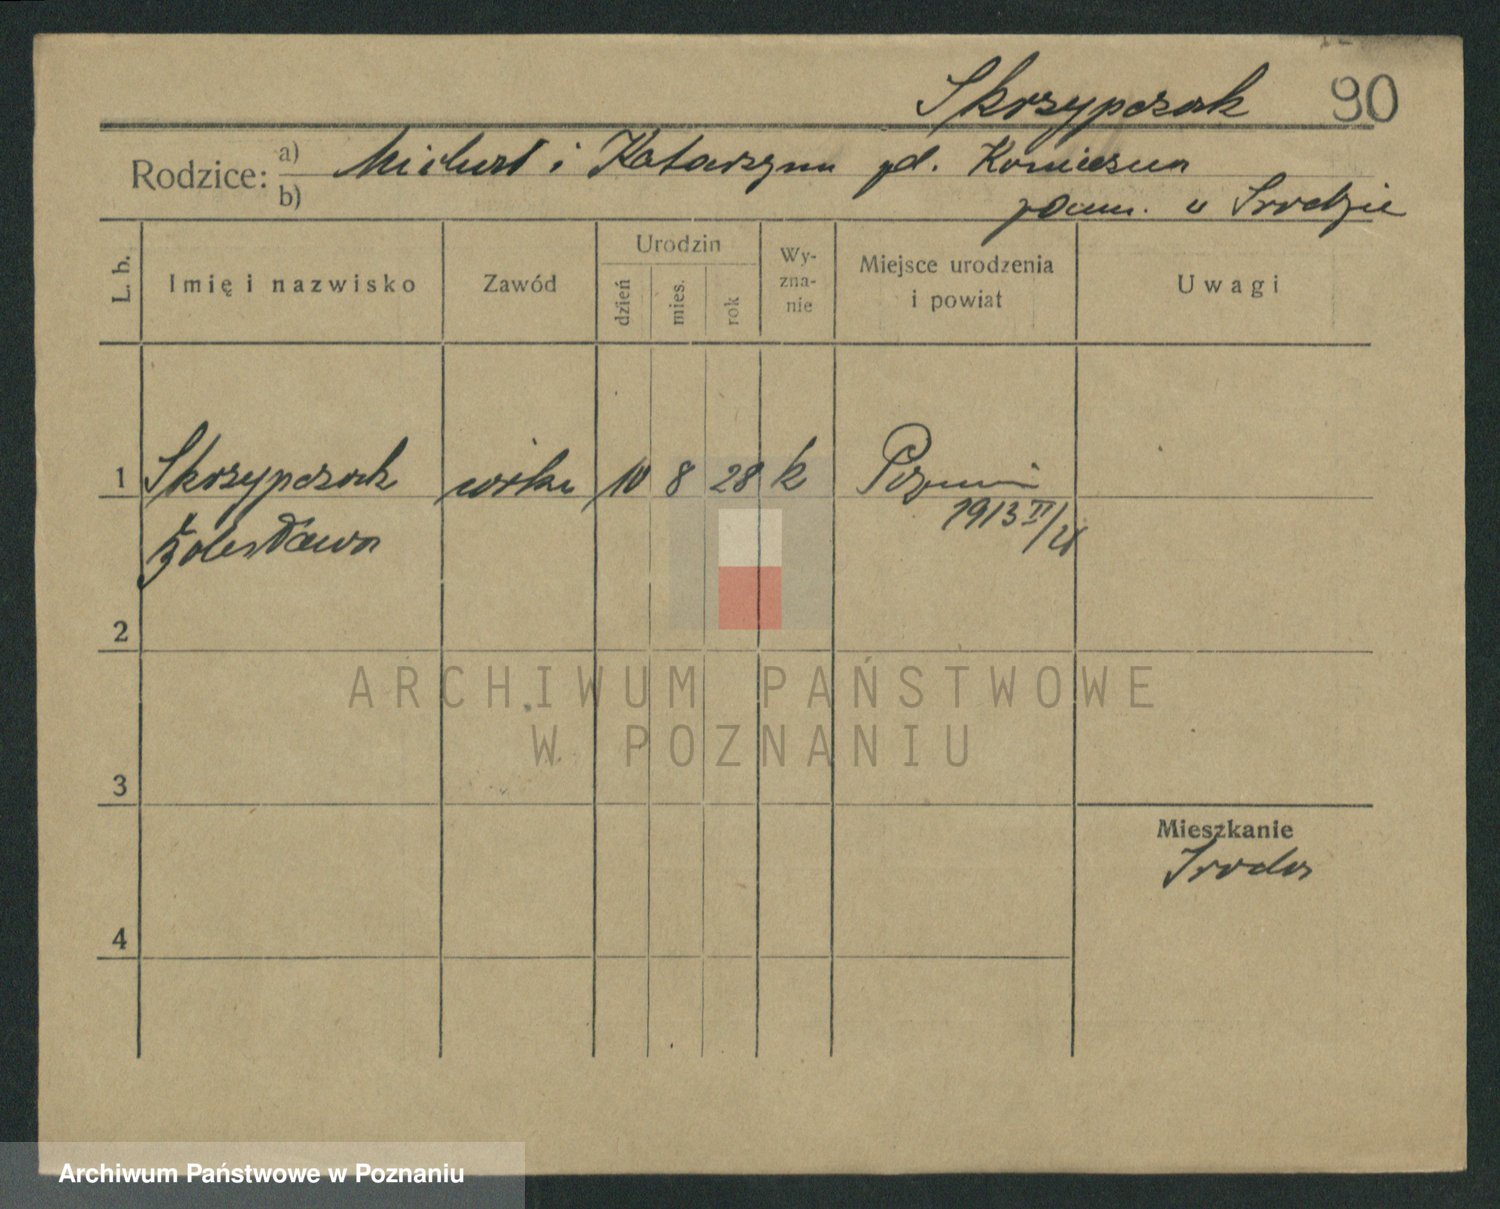 Skrzypczak 90
Rodzice: a) Michał i Katarzyna zd. Konieczna
b) zam. w Środzie
L. b.
Imię i nazwisko
Zawód
Urodzin
dzień
mies.
rok
Wy-
zna-
nie
Miejsce urodzenia
i powiat
Uwagi
1 Skrzypczak 10 8 28 k Poznań
Bolesława 1913 II/21
2
3
4
Mieszkanie
Środa
ARCHIWUM PAŃSTWOWE
W POZNANIU
Archiwum Państwowe w Poznaniu